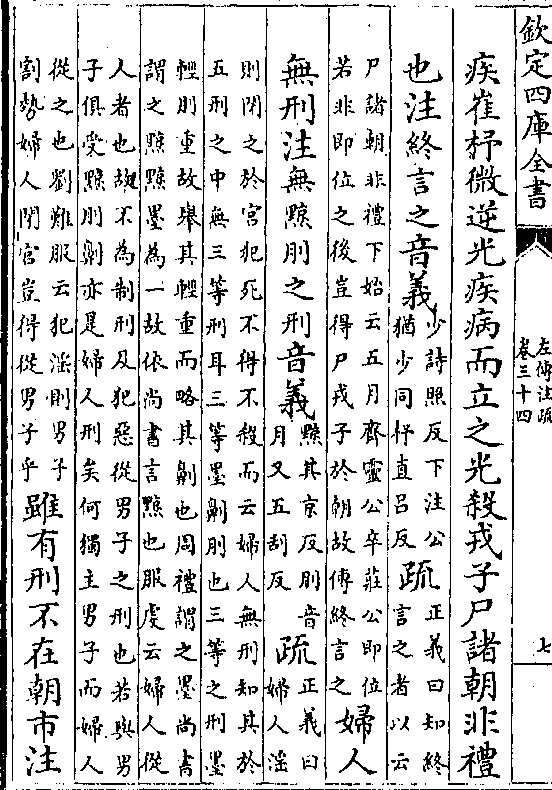 欽定四庫全書
左傳注疏
卷三十四
七
疾崔杼微逆光疾病而立之光殺戎子尸諸朝非禮
也注終言之音義
少詩照反下注公
猶少同杼直呂反
疏
正義曰知終
言之者以云
尸諸朝非禮下始云五月齊靈公卒莊公即位
若非即位之後豈得尸戎子於朝故傳終言之
婦人
無刑注無黥刖之刑音義
黥其京反刖音
月又五刮反
疏
正義曰
婦人淫
則閉之於宮犯死不得不殺而云婦人無刑知其於
五刑之中無三等刑耳三等墨劓刖也三等之刑墨
輕刖重故舉其輕重而略其劓也周禮謂之墨尚書
謂之黥黥墨為一故依尚書言黥也服虔云婦人從
人者也故不為制刑及犯惡從男子之刑也若與男
子俱受黥刖劓亦是婦人刑矣何獨主男子而婦人
從之也劉難服云犯淫則男子
割勢婦人閉宮豈得從男子乎
雖有刑不在朝市注